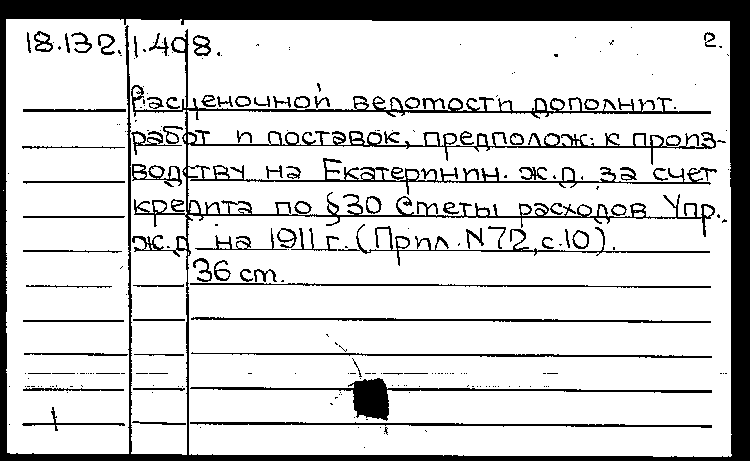 18.132.1.408.
2.
Расценочной ведомости дополнит.
работ и поставок, предполож. к произ-
водству на Екатеринин. ж.д. за счет
кредита по §30 Сметы расходов Упр.
ж.д на 1911 г. (Прил. N72, с.10).
36 ст.